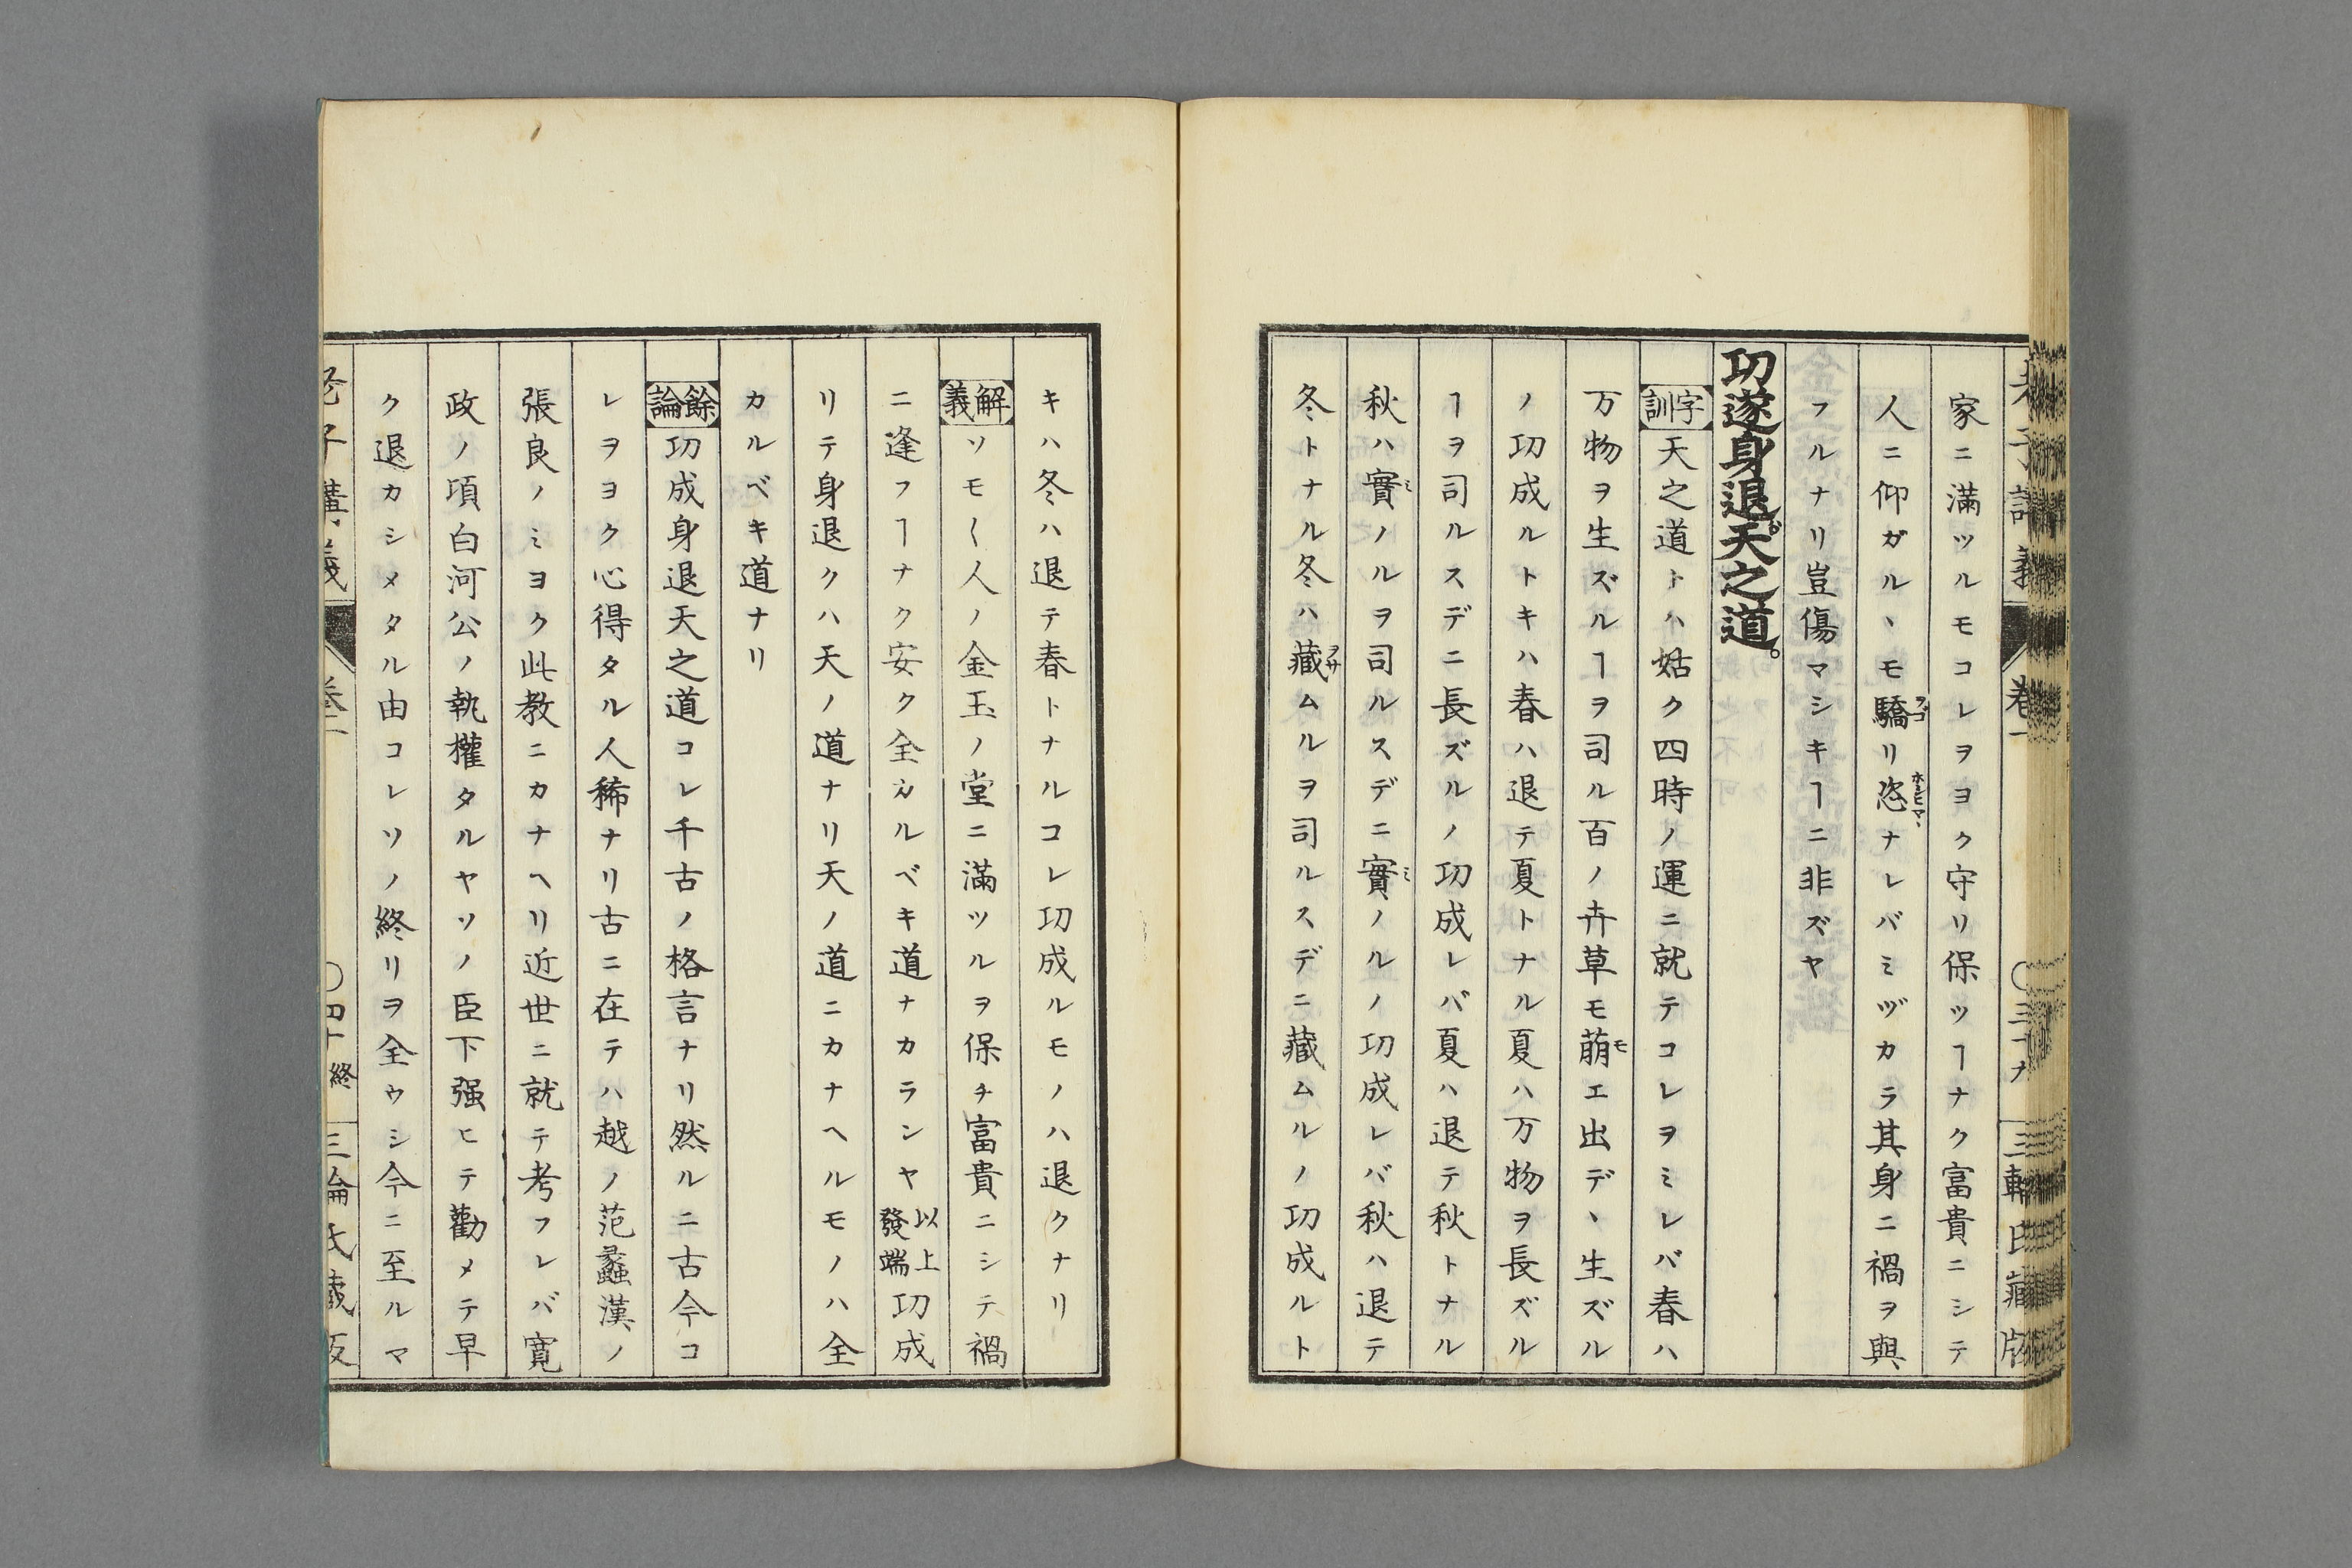 家ニ滿ツルモコレヲヨク守リ保ツヿナク富貴ニシテ
人ニ仰ガルヽモ驕リ恣ナレバミヅカラ其身ニ禍ヲ與
フルナリ豈傷マシキヿニ非ズヤ
功遂身退。天之道。
字訓 天之道トハ姑ク四時ノ運ニ就テコレヲミレバ春ハ
万物ヲ生ズルヿヲ司ル百ノ卉草モ萠エ出デヽ生ズル
ノ功成ルトキハ春ハ退テ夏トナル夏ハ万物ヲ長ズル
ヿヲ司ルスデニ長ズルノ功成レバ夏ハ退テ秋トナル
秋ハ實ノルヲ司ルスデニ實ノルノ功成レバ秋ハ退テ
冬トナル冬ハ藏ムルヲ司ルスデニ藏ムルノ功成ルト
キハ冬ハ退テ春トナルコレ功成ルモノハ退クナリ
解義 ソモ〱人ノ金玉ノ堂ニ滿ツルヲ保チ富貴ニシテ禍
ニ逢フヿナク安ク全カルベキ道ナカランヤ以上發端功成
リテ身退クハ天ノ道ナリ天ノ道ニカナヘルモノハ全
カルベキ道ナリ
餘論 功成身退天之道コレ千古ノ格言ナリ然ルニ古今コ
レヲヨク心得タル人稀ナリ古ニ在テハ越ノ范蠡漢ノ
張良ノミヨク此教ニカナヘリ近世ニ就テ考フレバ寛
政ノ項白河公ノ執權タルヤソノ臣下强ヒテ勸メテ早
ク退カシメタル由コレソノ終リヲ全ウシ今ニ至ルマ
老子講義 卷一 〇四十終 三輪氏藏版